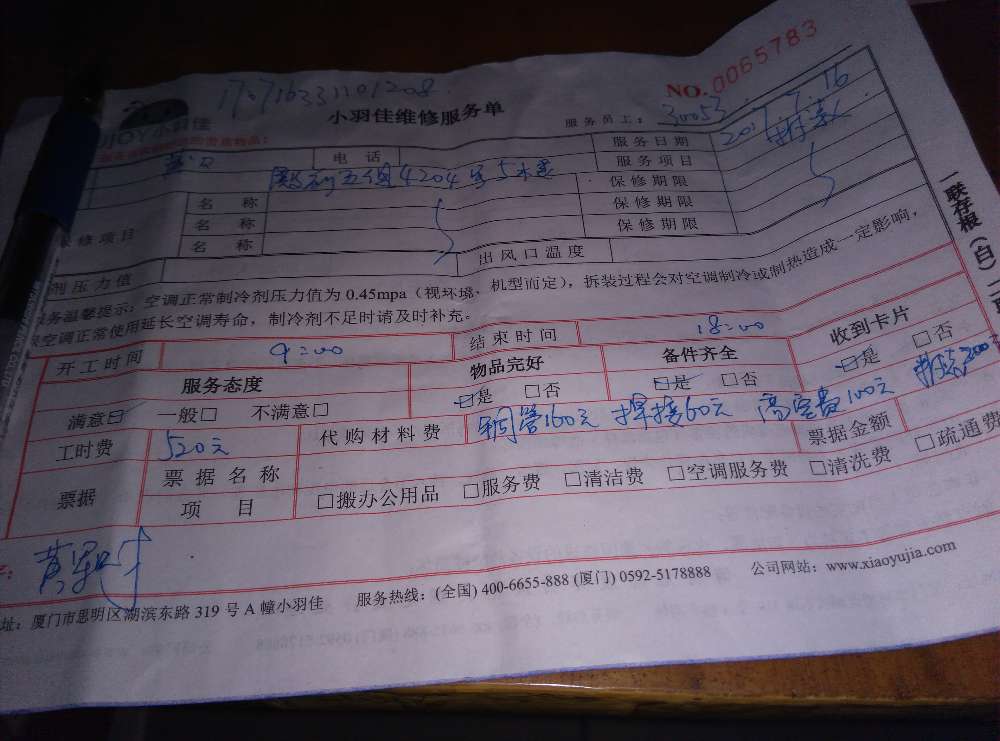 NO.0065783
小羽佳维修服务单
服务员工: 30053
JOY小羽佳
电 话
服务日期 2017.7.16
服务项目
名 称 保修期限
名 称 保修期限
名 称 保修期限
修项目
出风口温度
剂压力值
务温馨提示:空调正常制冷剂压力值为 0.45mpa(视环境、机型而定),拆装过程会对空调制冷或制热造成一定影响,
空调正常使用延长空调寿命,制冷剂不足时请及时补充。
开工时间 9:00 结束时间 18:00
服务态度 物品完好 备件齐全 收到卡片
满意☑ 一般□ 不满意□ ☑是 □否 ☑是 □否 ☑是 □否
工时费 520元 代购材料费 铜管160元 焊接60元 高空费100元 票据金额
票据 票据名称
项 目 □搬办公用品 □服务费 □清洁费 □空调服务费 □清洗费 □疏通费
址:厦门市思明区湖滨东路 319 号 A 幢小羽佳 服务热线:(全国) 400-6655-888 (厦门) 0592-5178888 公司网站:www.xiaoyujia.com
一联存根(白)